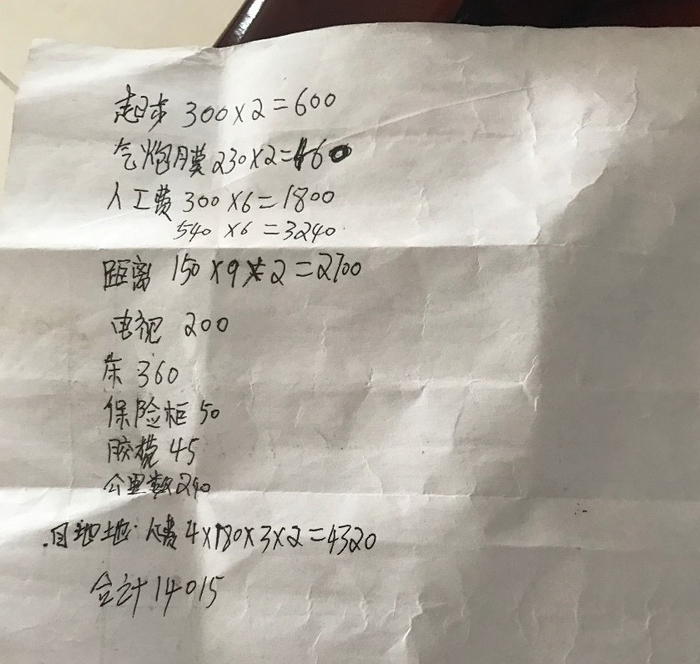 起步 300×2=600
气炮月费 230×2=460
人工费 300×6=1800
540×6=3240
距离 150×9×2=2700
电视 200
床 360
保险柜 50
胶 45
公里数 240
目地地:人费 4×180×3×2=4320
合计 14015